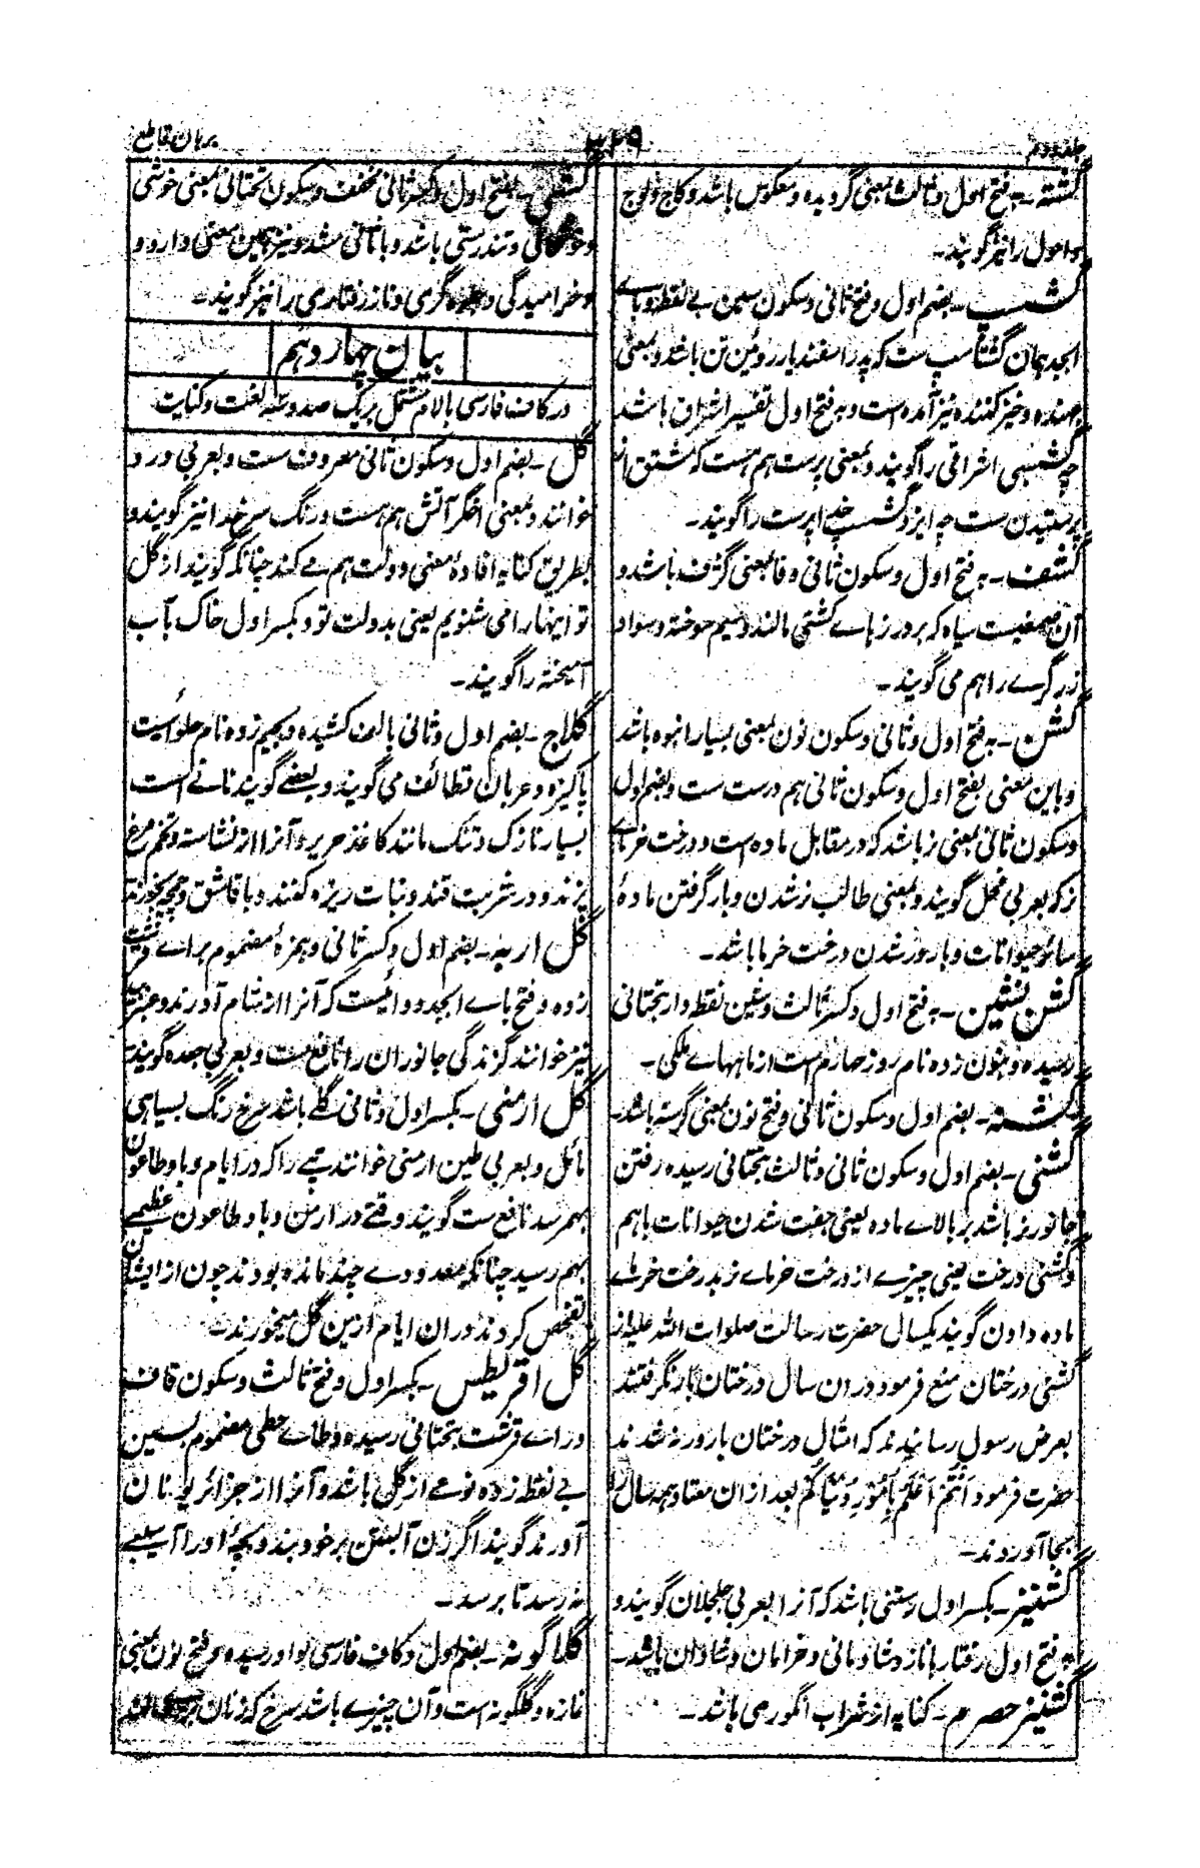 جلد دوم
۳۲۹
برهان قاطع
گشته - به فتح اول و ثالث بمعنی گردیده و معکوس باشد و کاج و لوج
و احول را نیز گویند -
گشسپ - بضم اول و فتح ثانی و سکون سین بے نقطه و باے
ابجد همان گشتاسپ ست که پدر اسفندیار روئین تن باشد و بمعنی
جهنده و خیز کننده نیز آمده است و به فتح اول تفسیر اشراق باشد
چه گشسپی اشراقی را گویند و بمعنی پرست هم هست که مشتق از
پرستیدن ست چه ایزد گشسپ خدا پرست را گویند -
گشف - به فتح اول و سکون ثانی و فا بمعنی گژف باشد و
آن صمغیست سیاه که بر درزهاے کشتی مالند و سیم سوخته و سواد
زرگرے را هم می گویند -
گشن - به فتح اول و ثانی و سکون نون بمعنی بسیار انبوه باشد
و باین معنی بفتح اول و سکون ثانی هم درست ست و بضم اول
و سکون ثانی بمعنی نر باشد که در مقابل ماده است و درخت خرماے
نر که بعربی فحل گویند و بمعنی طالب نر شدن و بار گرفتن مادهٔ
سائر حیوانات و بارور شدن درخت خرما باشد -
گشن نشین - به فتح اول و کسر ثالث و شین نقطه دار بتحتانی
رسیده و بنون زده نام روز چهارم است از ماههاے ملکی -
گشنه - بضم اول و سکون ثانی و فتح نون بمعنی گرسنه باشد -
گشنی - بضم اول و سکون ثانی و ثالث بتحتانی رسیده رفتن
جانور نر باشد بر بالاے ماده یعنی جفت شدن حیوانات باهم
و گشنی درخت یعنی چیزے از درخت خرماے نر بدرخت خرماے
ماده دادن گویند یکسالی حضرت رسالت صلوات الله علیه از
گشنی درختان منع فرمود دران سال درختان بار نگرفتند
بعرض رسول رسانیدند که امثال درختان بارور نه شدند
حضرت فرمود اَنتُم اَعلَمُ بِاُمُورِ دُنیَاکُم بعد ازان معتاد همه سال را
بجا آوردند -
گشنیز - بکسر اول رستنی باشد که آنرا بعربی جلجلان گویند و
به فتح اول رفتار باناز و شادمانی و خرامان و شادان باشد -
گشنیز حصرم - کنایه از شراب انگوری باشد -
گشی - بفتح اول و کسر ثانی مخفف و سکون تحتانی بمعنی خوشی
و خوشحالی و تندرستی باشد و با ثانی مشدد نیز بهمین معنی دارد و
و خرامیدگی و جلوه گری و ناز رفتاری را نیز گویند -
بیان چهاردهم
در کاف فارسی بالام مشتمل بر یک صد و سه لغت و کنایت
گل - بضم اول و سکون ثانی معروف ست و بعربی ورد
خوانند و بمعنی اخگر آتش هم هست و رنگ سرخ را نیز گویند و
بطریق کنایه افادهٔ معنی دولت هم مے کند چنانکه گویند از گل
تو اینهارا می شنویم یعنی بدولت تو و بکسر اول خاک بآب
آمیخته را گویند -
گلاج - بضم اول و ثانی بالف کشیده و بجیم زده نام حلوائیست
پاکیزه و عربان قطائف می گویند و بعضے گویند نانے است
بسیار نازک و تنک مانند کاغذ حریر و آنرا از نشاسته و تخم مرغ
پزند و در شربت قند و نبات ریزه کنند و با قاشق و چمچه بخورند
گل اربه - بضم اول و کسر ثانی و همزهٔ مضموم براے قرشت
زده و فتح باے ابجد دوائیست که آنرا از شام آورند و عربیه
نیز خوانند گزندگی جانوران را نافع ست و بعربی جعده گویند
گل ارمنی - بکسر اول و ثانی گلے باشد سرخ رنگ بسیاهی
مائل و بعربی طین ارمنی خوانند تپے را که در ایام وبا و طاعون
بهم رسد نافع ست گویند وقتے در ارمن وبا و طاعون عظیمے
بهم رسید چنانکه معدودے چند مانده بودند چون از ایشان
تفحص کردند دران ایام ازین گل میخوردند -
گل اقریطس - بکسر اول و فتح ثالث و سکون قاف
و راے قرشت بتحتانی رسیده و طاے حطی مضموم بسین
بے نقطه زده نوعے از گل باشد و آنرا از جزائر یونان
آورند گویند اگر زن آبستن بر خود بندد بچهٔ اورا آسیبے
نه رسد تا برسد -
گلاگونه - بضم اول و کاف فارسی بواو رسیده و فتح نون بمعنی
غازه و گلگونه است و آن چیزے باشد سرخ که زنان بر